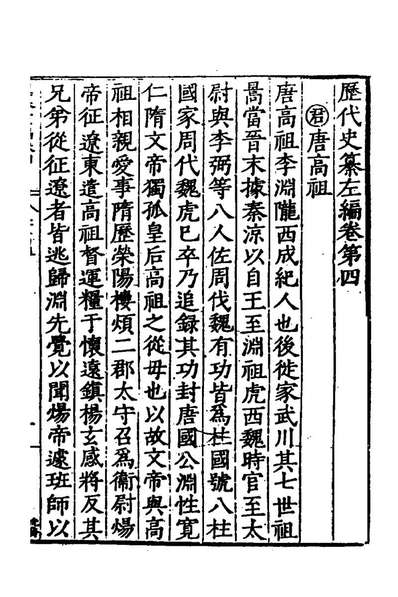 歷代史纂左編卷第四
君唐高祖
唐高祖李淵隴西成紀人也後徙家武川其七世祖
暠當晉末據秦涼以自王至淵祖虎西魏時官至太
尉與李弼等八人佐周伐魏有功皆爲柱國號八柱
國家周代魏虎已卒乃追錄其功封唐國公淵性寛
仁隋文帝獨孤皇后高祖之從母也以故文帝與高
祖相親愛事隋歷滎陽樓煩二郡太守召爲衞尉煬
帝征遼東遣高祖督運糧于懷遠鎮楊玄感將反其
兄弟從征遼者皆逃歸淵先覺以聞煬帝遽班師以